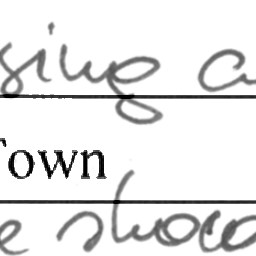 sing a
Town
e shoco